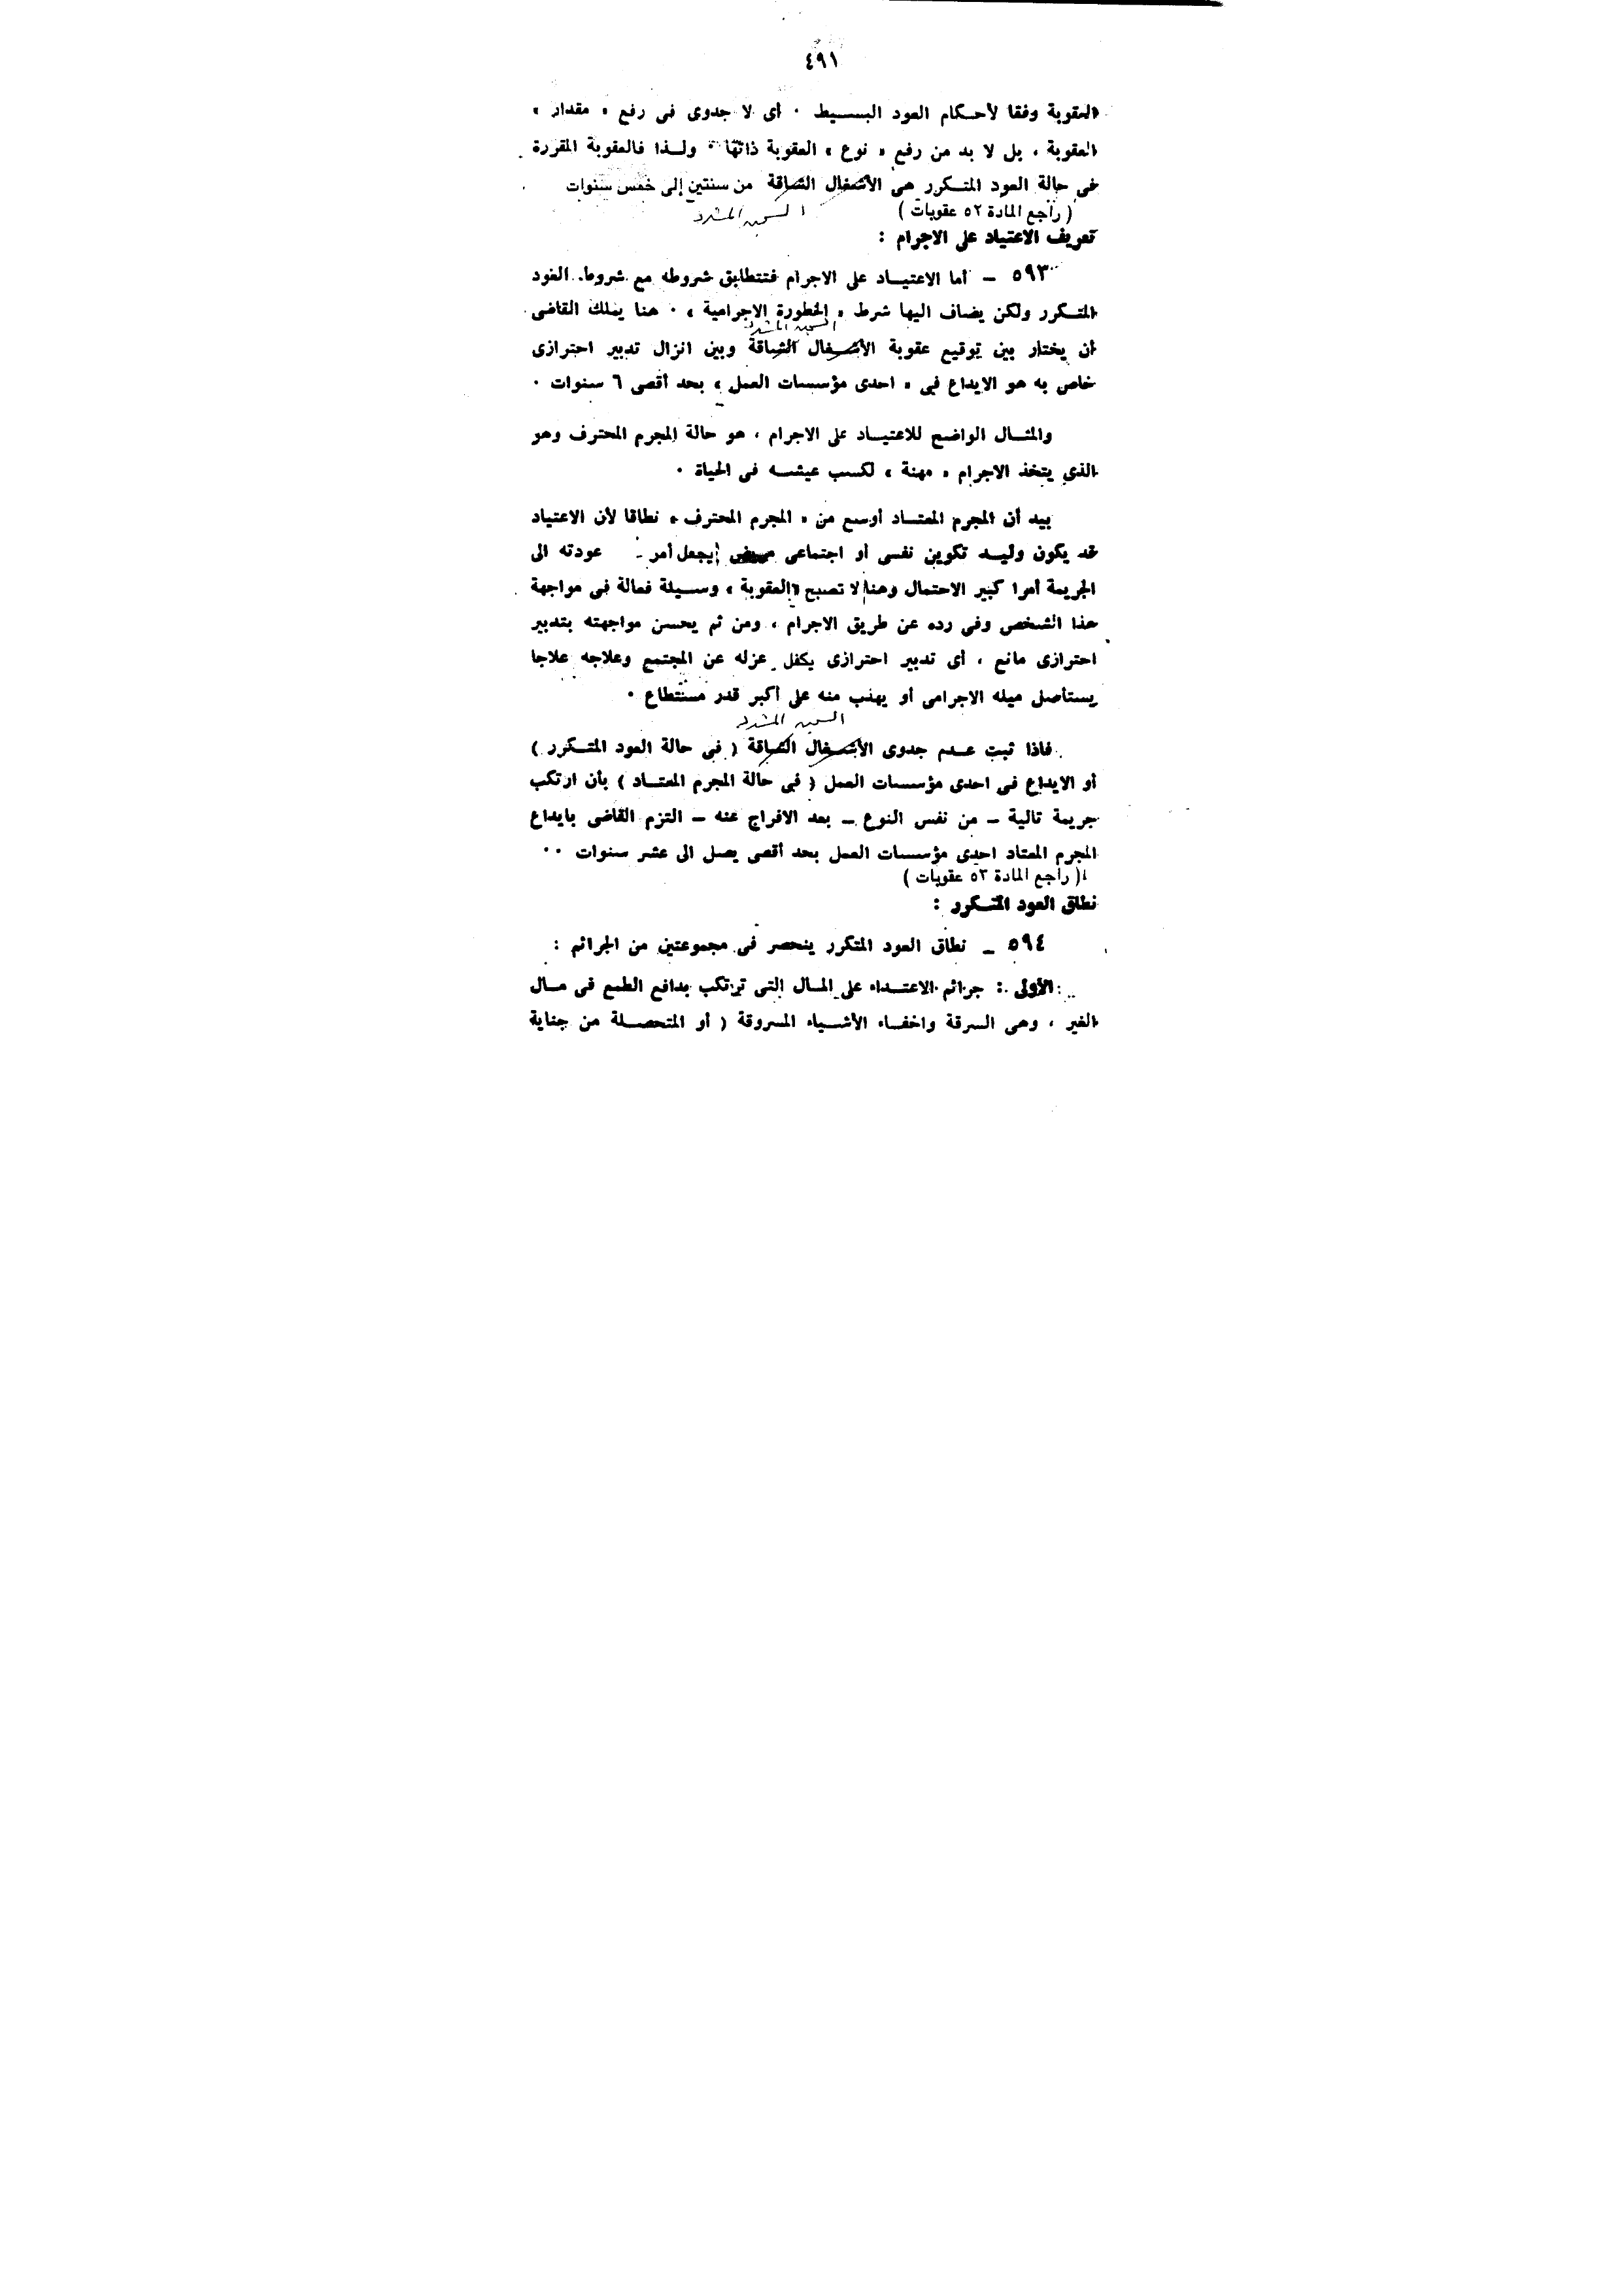 ٤٩١
العقوبة وفقا لأحكام العود البسيط ٠ أى لا جدوى فى رفع « مقدار »
العقوبة ، بل لا بد من رفع « نوع » العقوبة ذاتها ٠ ولذا فالعقوبة المقررة
فى حالة العود المتكرر هى الأشغال الشاقة من سنتين إلى خمس سنوات
( راجع المادة ٥٢ عقوبات ) السجن المشدد
تعريف الاعتياد على الاجرام :
٥٩٣ – أما الاعتياد على الاجرام فتتطابق شروطه مع شروط العود
المتكرر ولكن يضاف اليها شرط « الخطورة الاجرامية » ٠ هنا يملك القاضى
السجن المشدد
أن يختار بين توقيع عقوبة الأشغال الشاقة وبين انزال تدبير احترازى
خاص به هو الايداع فى « احدى مؤسسات العمل » بحد أقصى ٦ سنوات ٠
والمثال الواضح للاعتياد على الاجرام ، هو حالة المجرم المحترف وهو
الذى يتخذ الاجرام « مهنة » لكسب عيشه فى الحياة ٠
بيد أن المجرم المعتاد أوسع من « المجرم المحترف » نطاقا لأن الاعتياد
قد يكون وليد تكوين نفسى أو اجتماعى يجعل أمر عودته الى
الجريمة أمرا كبير الاحتمال وهنا لا تصبح « العقوبة » وسيلة فعالة فى مواجهة
هذا الشخص وفى رده عن طريق الاجرام ، ومن ثم يحسن مواجهته بتدبير
احترازى مانع ، أى تدبير احترازى يكفل عزله عن المجتمع وعلاجه علاجا
يستأصل ميله الاجرامى أو يهذب منه على أكبر قدر مستطاع ٠
السجن المشدد
فاذا ثبت عدم جدوى الأشغال الشاقة ( فى حالة العود المتكرر )
أو الايداع فى احدى مؤسسات العمل ( فى حالة المجرم المعتاد ) بأن ارتكب
جريمة تالية – من نفس النوع – بعد الافراج عنه – التزم القاضى بايداع
المجرم المعتاد احدى مؤسسات العمل بحد أقصى يصل الى عشر سنوات ٠٠
( راجع المادة ٥٣ عقوبات )
نطاق العود المتكرر :
٥٩٤ – نطاق العود المتكرر ينحصر فى مجموعتين من الجرائم :
الأولى : جرائم الاعتداء على المال التى ترتكب بدافع الطمع فى مال
الغير ، وهى السرقة واخفاء الأشياء المسروقة ( أو المتحصلة من جناية